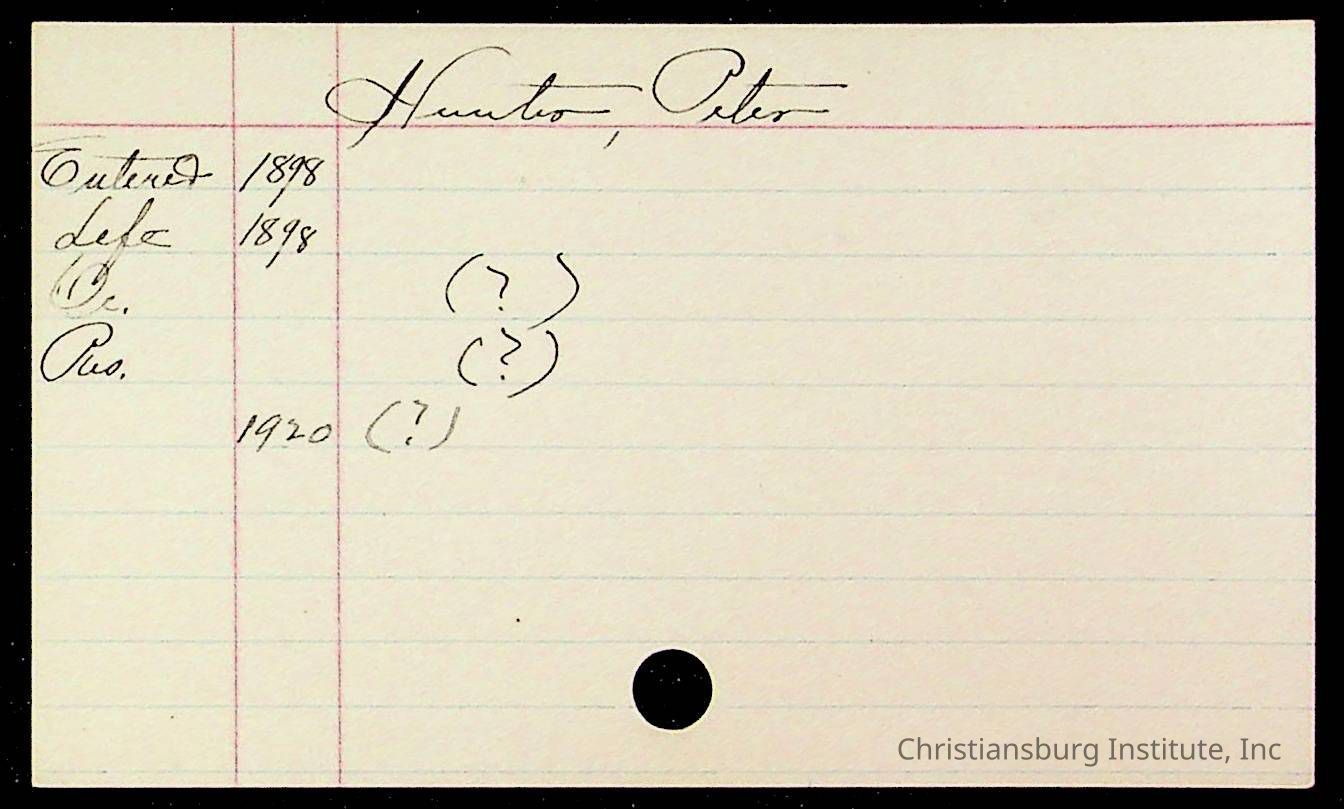 Hunter, Peter
Entered 1898
Left 1898
Oc. (?)
Res. (?)
1920 (?)
Christiansburg Institute, Inc